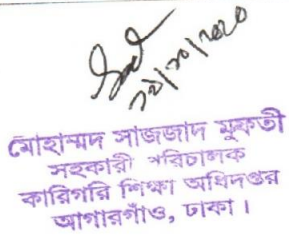 ১২/১০/২০২০
মোহাম্মদ সাজজাদ মুফতী
সহকারী পরিচালক
কারিগরি শিক্ষা অধিদপ্তর
আগারগাঁও, ঢাকা।